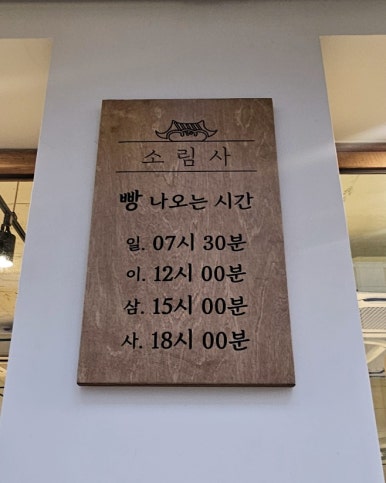 소림사
빵 나오는 시간
일. 07시 30분
이. 12시 00분
삼. 15시 00분
사. 18시 00분